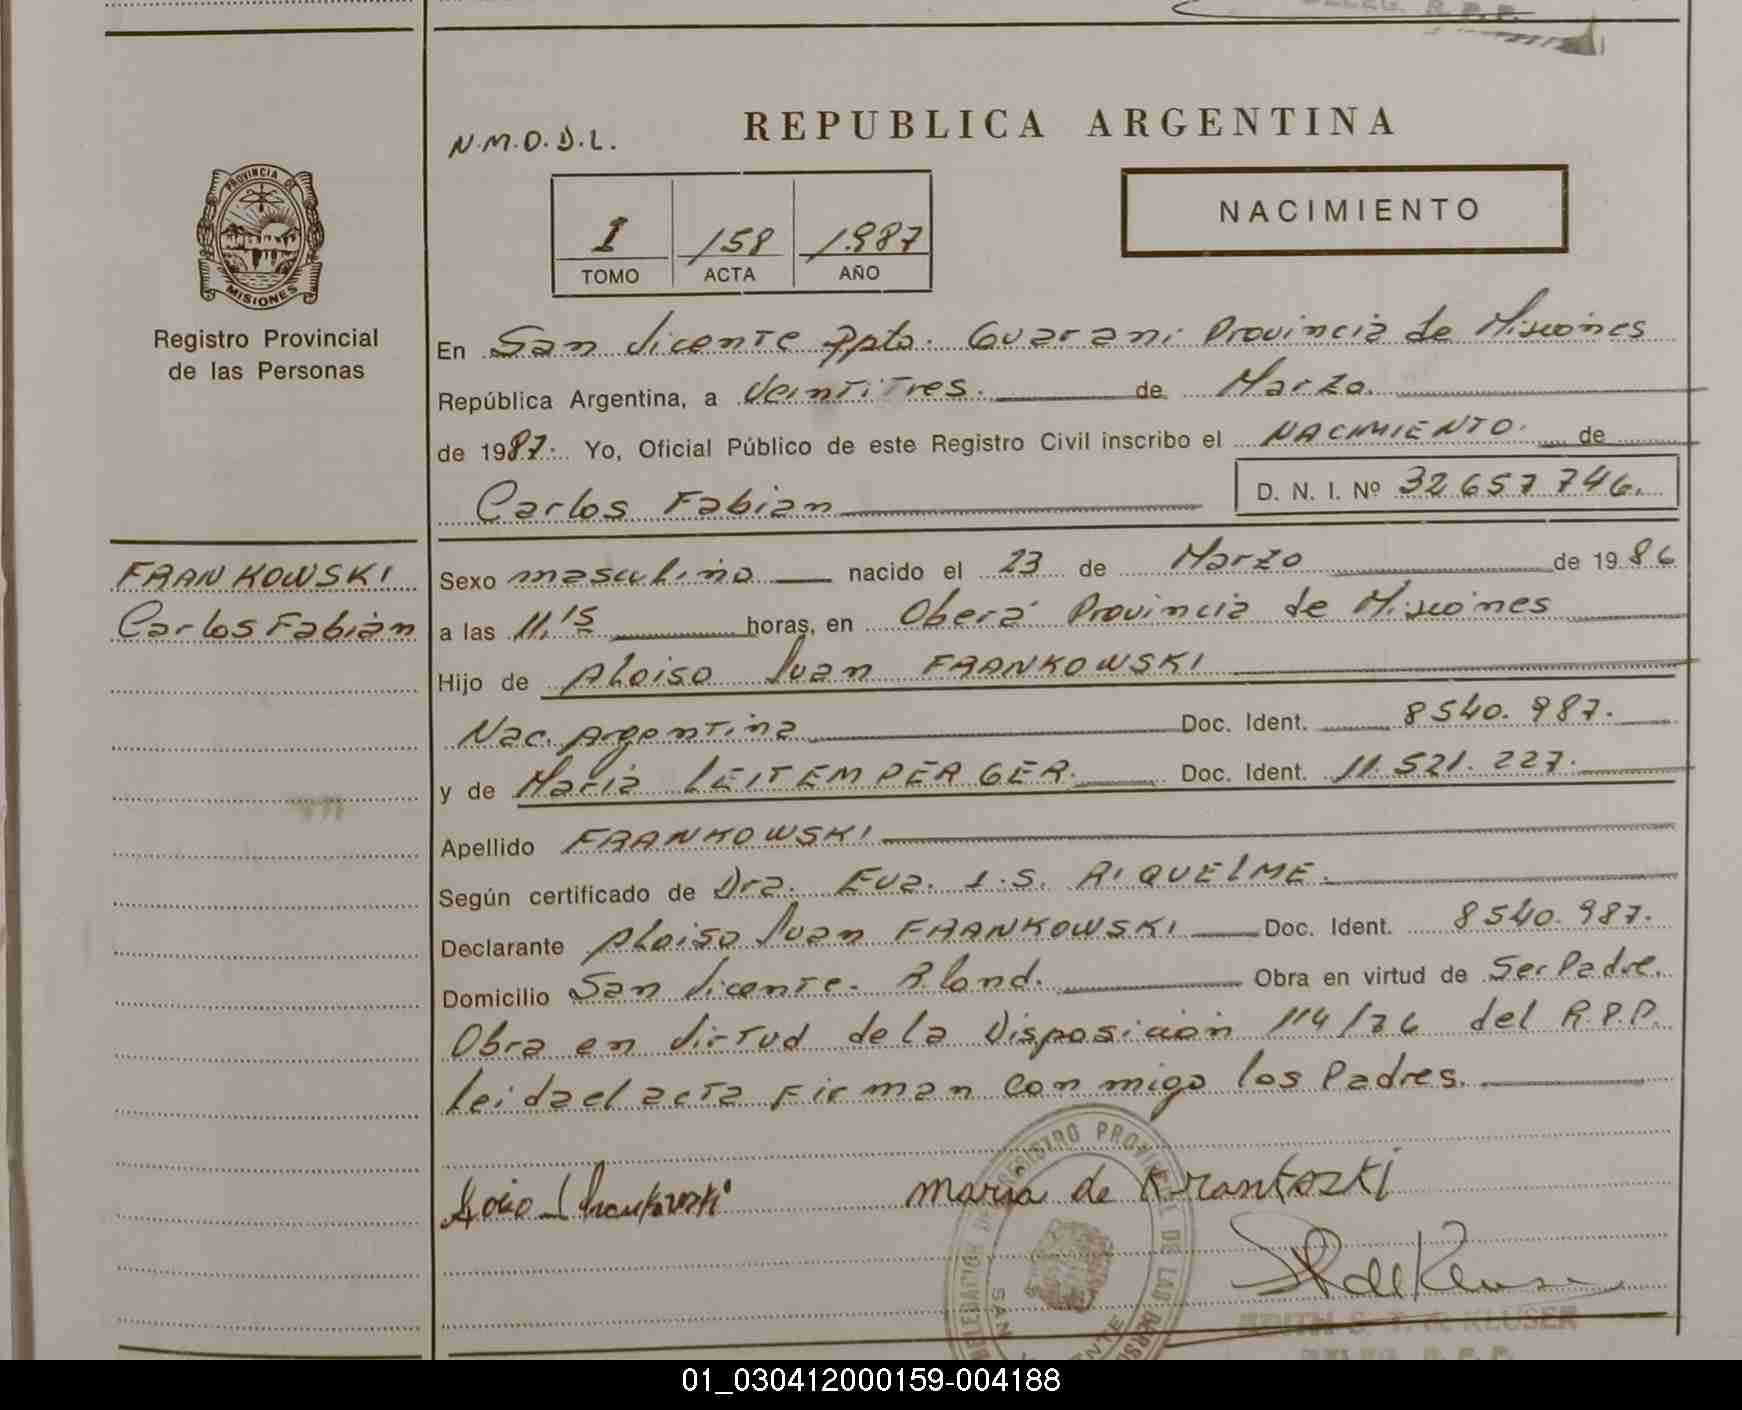 DELEG. R. P. P.
REPUBLICA ARGENTINA
N.M.O.D.L.
PROVINCIA DE
MISIONES
Registro Provincial
de las Personas
I 158 1.987
TOMO ACTA AÑO
NACIMIENTO
En San Vicente Dpto. Guarani Provincia de Misiones
República Argentina, a Veintitres. de Marzo.
de 1987. Yo, Oficial Público de este Registro Civil inscribo el NACIMIENTO. de
Carlos Fabian D. N. I. Nº 32657746.
FRANKOWSKI
Carlos Fabián
Sexo masculino nacido el 23 de Marzo de 1986
a las 11,15 horas, en Oberá Provincia de Misiones
Hijo de Aloiso Juan FRANKOWSKI
Nac. Argentina Doc. Ident. 8540.987.
y de Maria LEITEMPERGER. Doc. Ident. 11.521.227.
Apellido FRANKOWSKI
Según certificado de Dra. Eva. I.S. RIQUELME.
Declarante Aloiso Juan FRANKOWSKI Doc. Ident. 8540.987.
Domicilio San Vicente. Obra en virtud de Ser Padre.
Obra en Virtud de la Disposición 114/76 del R.P.P.
Leida el acta Firman Conmigo los Padres.
maria de
REGISTRO PROVINCIAL DE LAS PERSONAS
SAN VICENTE
KLUSER
DELEG. R. P. P.
01_030412000159-004188